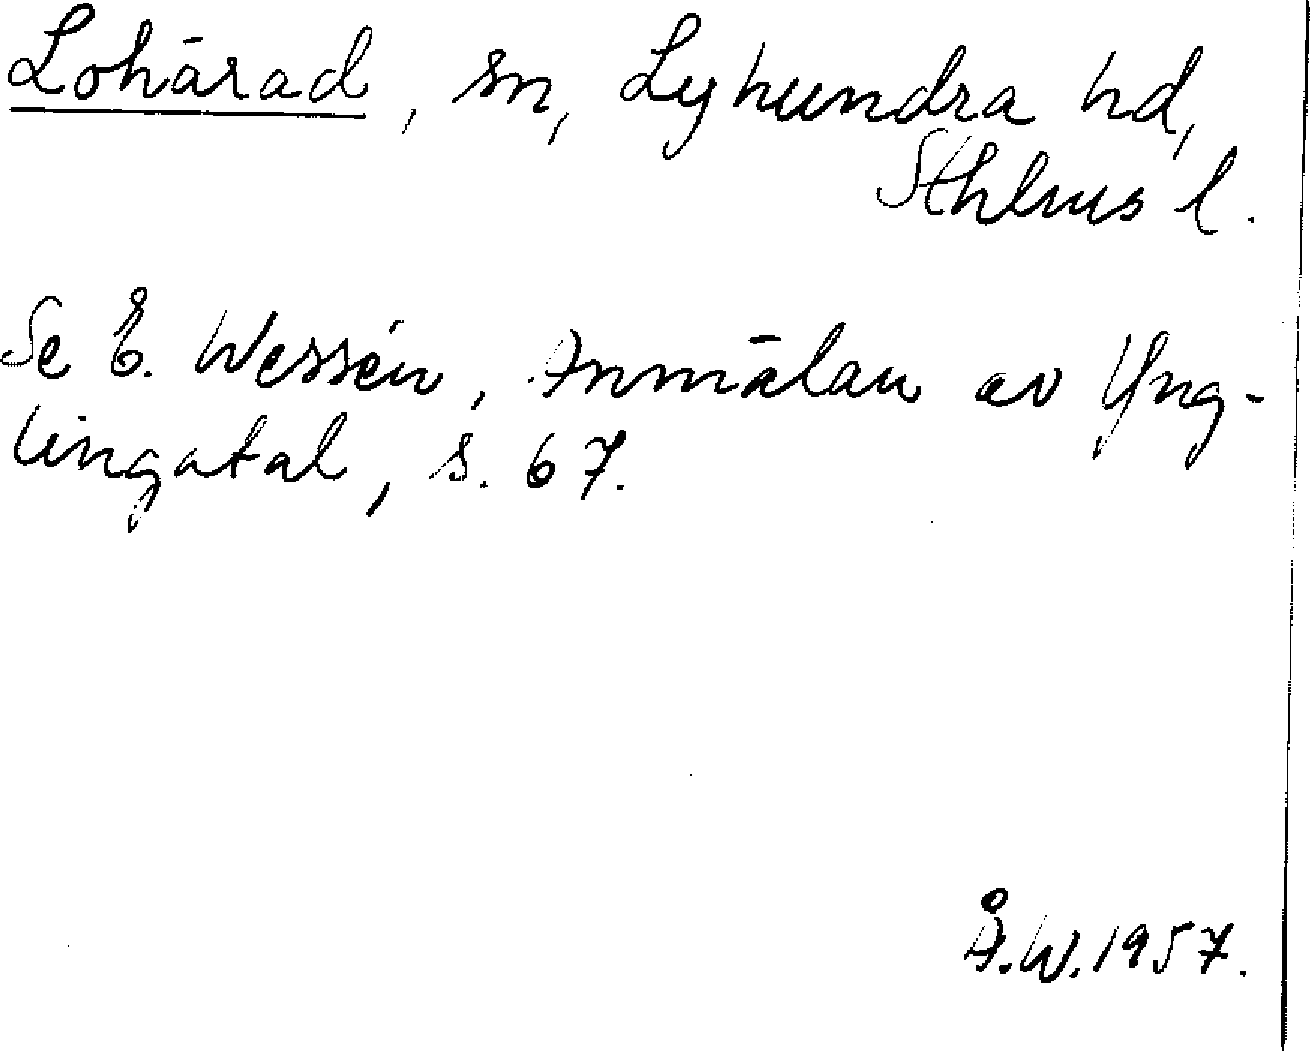 Lohärad, sn, Lyhundra hd,
Sthlms l.
Se E. Wessén, Anmälan av Yng-
lingatal, s. 67.
Å.W. 1957.